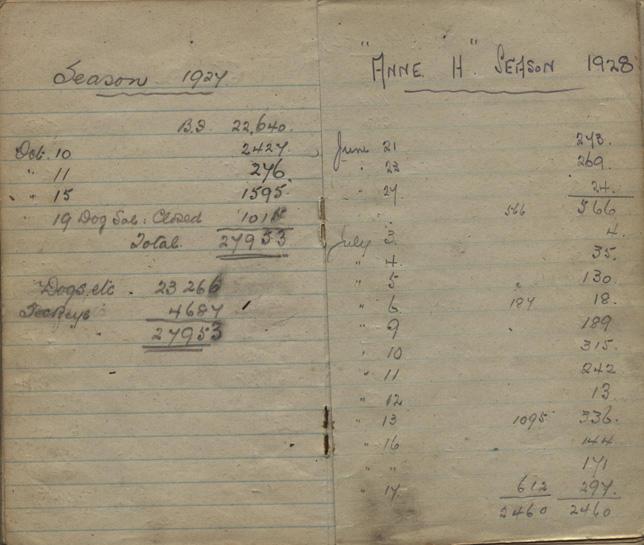 Season 1927
B.F 22,640.
Oct. 10 2427
" 11 276
" 15 1595
19 Dog Sal: Closed 1015
Total 27953
Dogs, etc. 23266
Sockeys 4687
27953
"ANNE H" SEASON 1928
June 21 273.
" 22 269.
" 27 24.
" 566 566
July 3 4.
" 4. 35.
" 5 " 130
" 6 187 18.
" 9 " 189
" 10 315
" 11 242
" 12 13
" 13 1095 336.
" 16 144
" " 171
" 17 612 297.
2460 2460